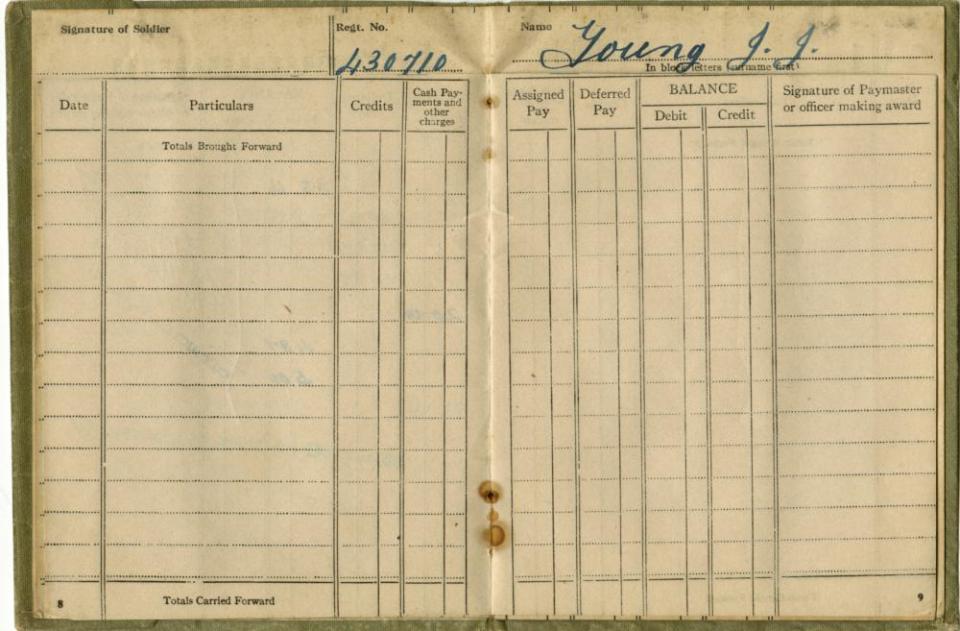 Signature of Soldier
Regt. No.
430710
Name
Young J. J.
In block letters (surname first)
Date
Particulars
Credits
Cash Pay-
ments and
other
charges
Assigned
Pay
Deferred
Pay
BALANCE
Debit
Credit
Signature of Paymaster
or officer making award
Totals Brought Forward
Totals Carried Forward
8
9